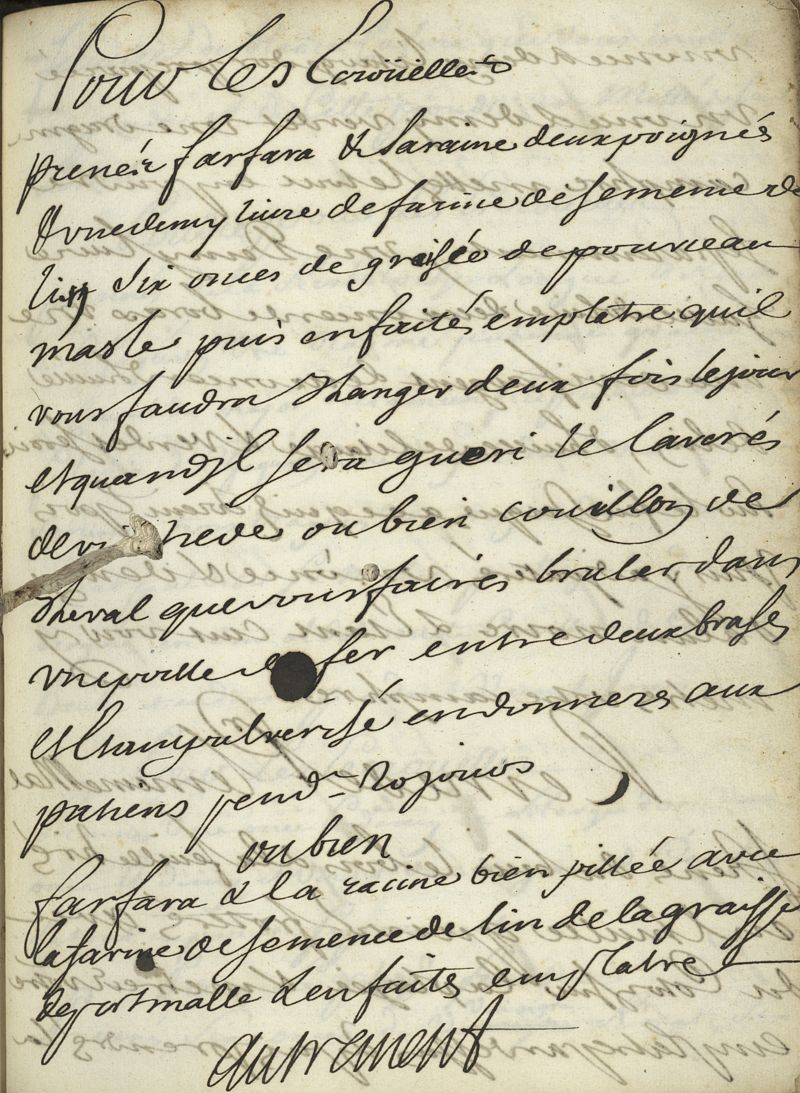 Pour lesEcroüelles
prenéz farfara & laraine deux poignés
& une demy livre de farine de semence de
lin six onces de graisse de pourceau
masle puis en faités emplatre quil
vous faudra changer deux fois le jour
et quand jl sera gueri le laverés
de ou bien couillon de
cheval que vous fairés bruler dans
une poille de fer entre deux brases
et estant pulverisé en donneres aux
patiens pend.t 20 jours
ou bien
farfara & la racine bien pillée avec
la farine de semence de lin de la graisse
de port malle & en faits emplatre
autrement